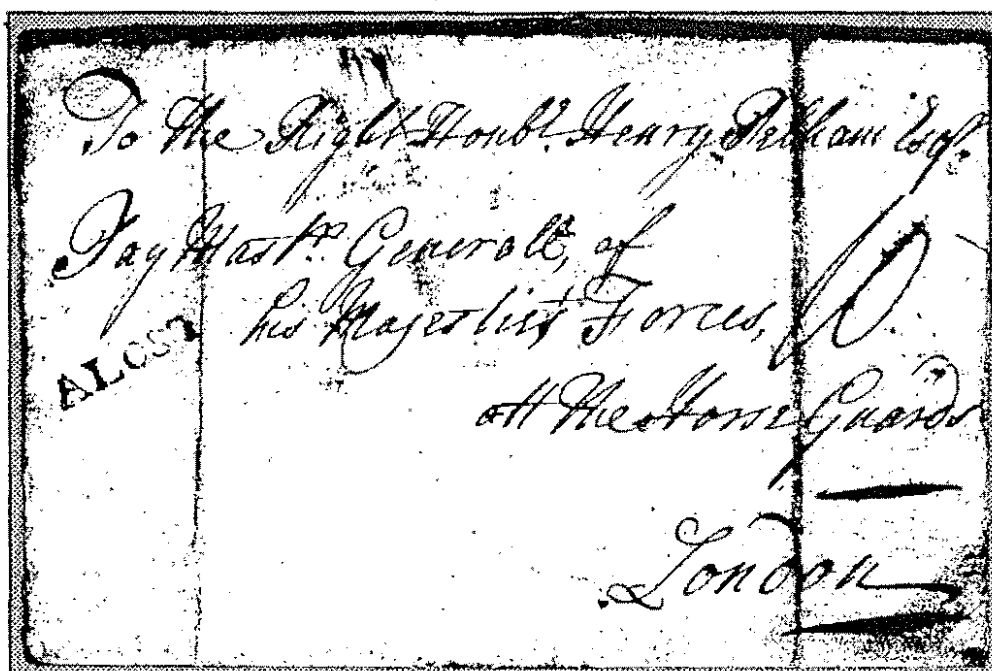 To the Right Honble. Henry Pelham Esqr.
Pay Mastr. Generall, of
his Majesties Forces,
ALOST
att the Horse Guards
London